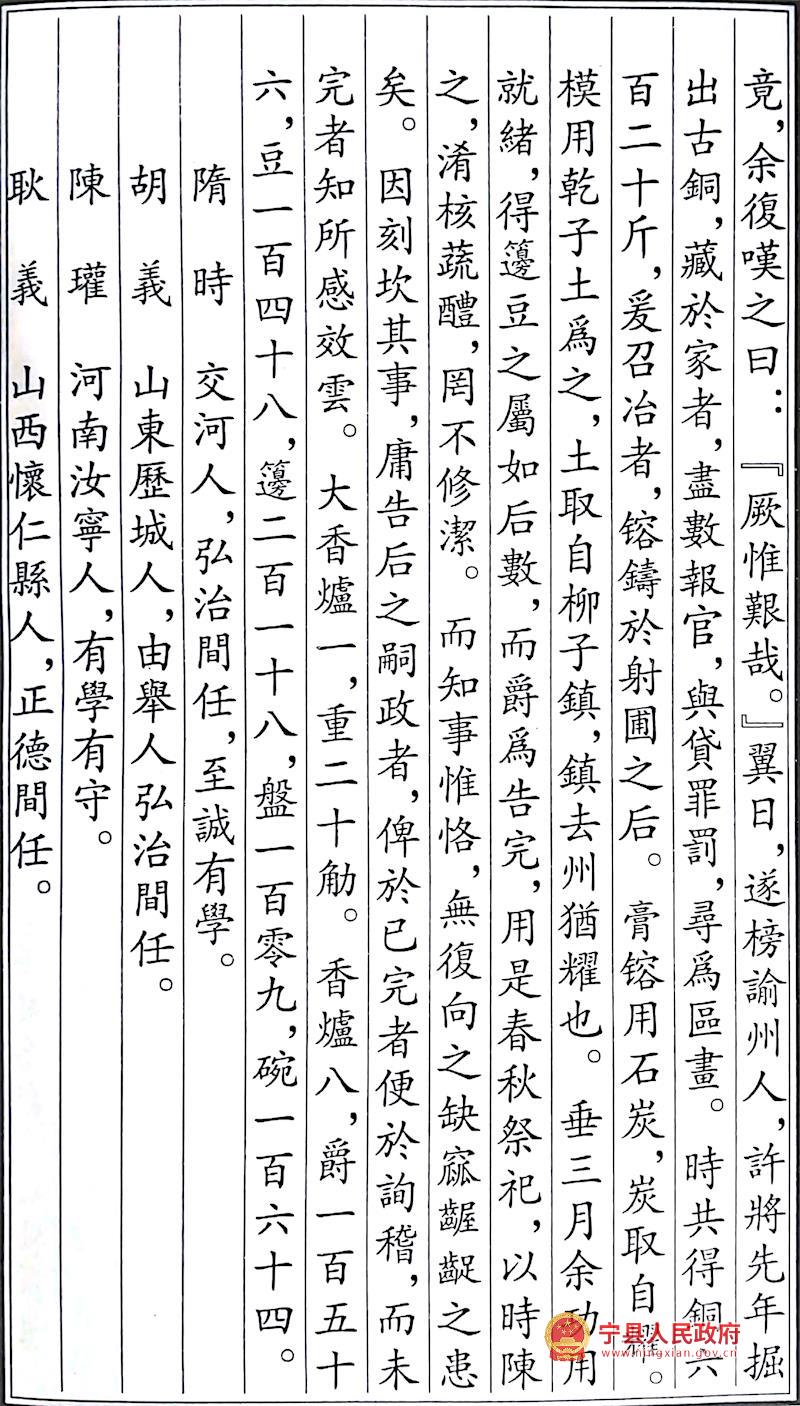 竟，余復嘆之曰：『厥惟艱哉。』翼日，遂榜諭州人，許將先年掘
出古銅，藏於家者，盡數報官，與貸罪罰，尋爲區畫。時共得銅六
百二十斤，爰召冶者，镕鑄於射圃之后。膏镕用石炭，炭取自耀。
模用乾子土爲之，土取自柳子鎮，鎮去州猶耀也。垂三月余功用
就緒，得籩豆之屬如后數，而爵爲告完，用是春秋祭祀，以時陳
之，淆核蔬醴，罔不修潔。而知事惟恪，無復向之缺窳齷齪之患
矣。因刻坎其事，庸告后之嗣政者，俾於已完者便於詢稽，而未
完者知所感效雲。大香爐一，重二十觔。香爐八，爵一百五十
六，豆一百四十八，籩二百一十八，盤一百零九，碗一百六十四。
隋時 交河人，弘治間任，至誠有學。
胡義 山東歷城人，由舉人弘治間任。
陳瓘 河南汝寧人，有學有守。
耿義 山西懷仁縣人，正德間任。
宁县人民政府
www.ningxian.gov.cn